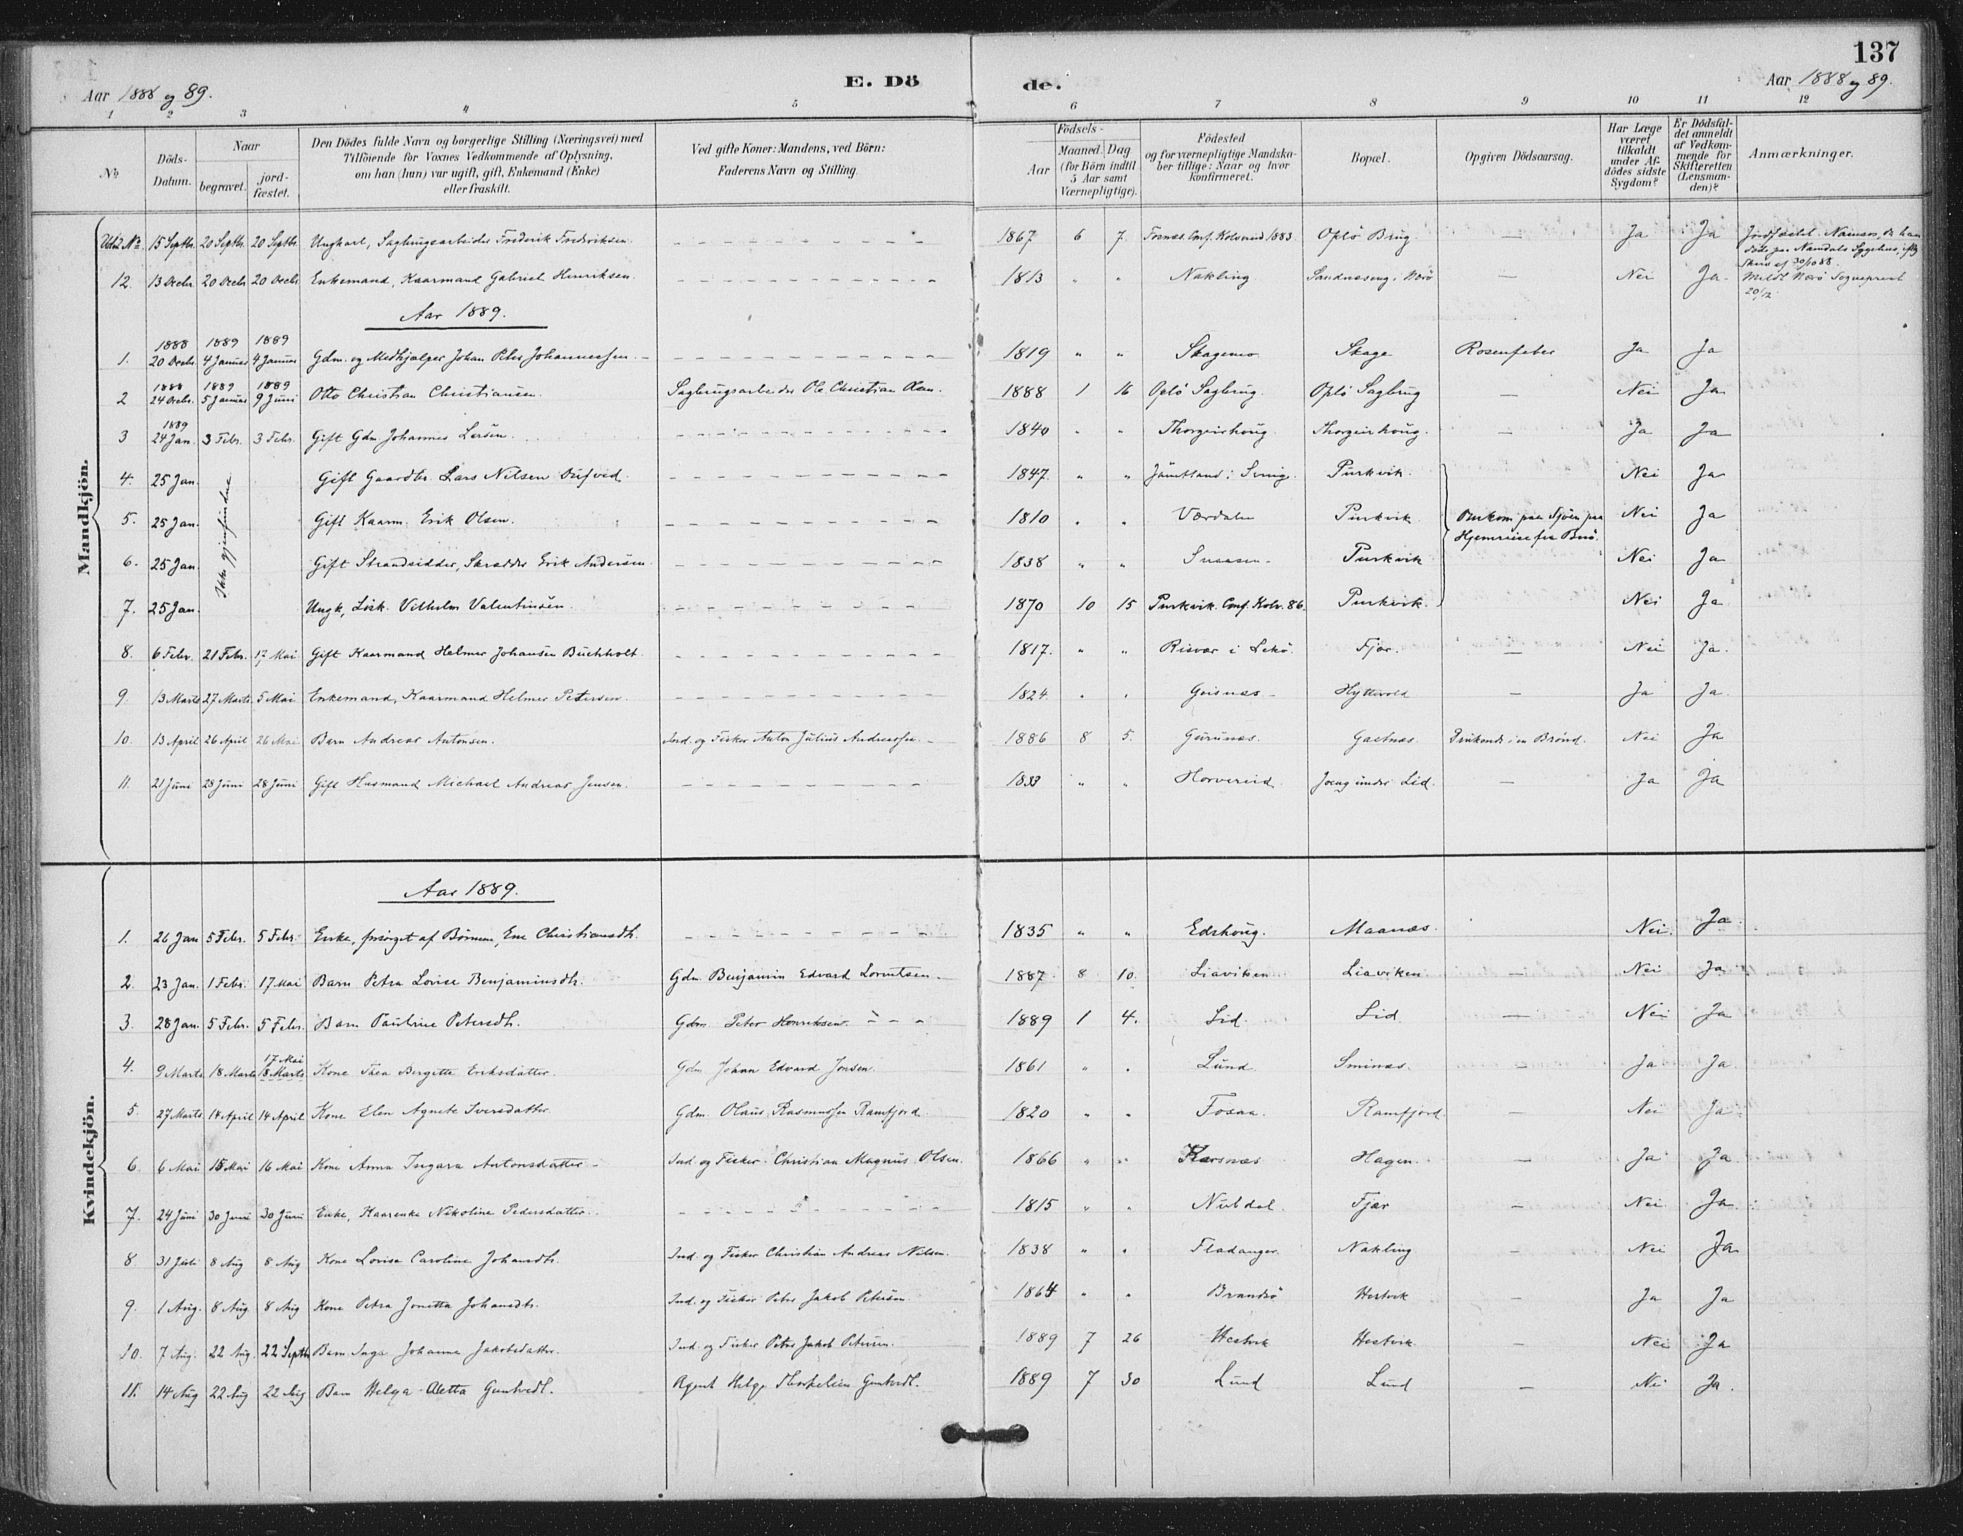 137
Aar 1888 og 89. E. Dö de. Aar 1888 og 89.
1 2 3 4 5 6 7 8 9 10 11 12
№
Döds-Datum.
Naar
begravet.
jord-fæstet.
Den Dödes fulde Navn og borgerlige Stilling (Næringsvei) med
Tilföiende for Voxnes Vedkommende af Oplysning,
om han (hun) var ugift, gift, Enkemand (Enke)
eller fraskilt.
Ved gifte Koner: Mandens, ved Börn:
Faderens Navn og Stilling.
Födsels-
Aar
Maaned. Dag
(for Börn indtil
5 Aar samt
Værnepligtige).
Födested
og for værnepligtige Mandska-
ber tillige: Naar og hvor
konfirmeret.
Bopæl.
Opgiven Dödsaarsag.
Har Læge
været
tilkaldt
under Af-
dödes sidste
Sygdom?
Er Dödsfal-
det anmeldt
af Vedkom-
mende for
Skifteretten
(Lensman-
den)?
Anmærkninger.
Mandkjön.
15 Septbr. 20 Septbr. 20 Septbr. Ungkarl, Sagbrugsarbeider Frederik Fredriksen. 1867 6 7 Conf. Kolvereid 1883. Oplö Brug. — Ja Ja
12. 13 Decbr. 20 Decbr. 20 Decbr. Enkemand, Kaarmand Gabriel Henriksen. 1813 " " Nakling — Nei Ja.
Aar 1889.
1888 1889 1889
1. 20 Decbr. 4 Januar 4 Januar Gdm. og Medhjælper Johan Peter Johannessen. 1819 " " Skagemo Skage Rosenfeber Ja Ja
1888 1889 1889
2 24 Decbr. 5 Januar 9 Juni Otto Christian Christiansen. Sagbrugsarbeider Ole Christian 1888 1 16 Oplö Sagbrug. Oplö Sagbrug — Nei Ja
1889
3 24 Jan. 3 Febr. 3 Febr. Gift Gdm. Johannes Larsen. 1840 " " — Ja Ja
4. 25 Jan. Ikke gjenfundne Gift Gaardbr. Lars Nilsen 1847. " " Jämtland i Sverig. Purkvik. Nei Ja
5. 25 Jan. Gift Kaarm. Erik Olsen. 1810 " " Værdalen Purkvik Omkom paa Sjöen paa Nei Ja
Hjemreise fra
6. 25 Jan. Gift Strandsidder, Skrædder Erik Andersen. 1838 " " Snaasen. Purkvik Nei Ja
7. 25 Jan. Ungk, Lösk. Vilhelm Valentinsen. 1870 10 15 Purkvik. Conf. Kolv. 86. Purkvik. Nei Ja
8. 6 Febr. 21 Febr. 17 Mai Gift Kaarmand Helmer Johansen Buchholt. 1817. " " Risvær i Lekö. Fjær. — Nei Ja.
9. 13 Marts 27 Marts 5 Mai Enkemand, Kaarmand Helmer Petersen. 1824 " " Geisnæs — Ja Ja.
10. 13 April 26 April 26 Mai Barn Andreas Antonsen. Ind. og Fisker Anton Julius Andreassen. 1886 8 5. Druknede i en Brönd. Nei Ja
11. 21 Juni 28 Juni 28 Juni Gift Husmand Michael Andreas Jensen. " " Horvereid under Lid. — Ja Ja
Kvindekjön.
Aar 1889.
1. 26 Jan. 5 Febr. 5 Febr. Enke, forsörget af Börnene, Christiansdtr. 1835 " " Edshoug. Maanæs. Nei. Ja.
2. 23 Jan. 1 Febr. 17 Mai Barn Petra Lovise Benjaminsdtr. Gdm. Benjamin Edvard Lorentsen. 1887. 8 10. Liaviken Liaviken — Nei Ja
3. 28 Jan. 5 Febr. 5 Febr. Barn Pauline Petersdtr. Gdm. Peter Henriksen. 1889 1 4. Lid. Lid. — Nei Ja
17 Mai
4. 9 Marts 18 Marts 18 Marts Kone Thea Bergitte Eriksdatter. Gdm. Johan Edvard Jensen. 1861 " " Lund. Sminæs. — Ja Ja.
5. 27 Marts 14 April 14 April Kone Elen Agnete Iversdatter. Gdm. Olaus Rasmussen Ramfjord. 1820 " " Fosaa. Ramfjord. — Nei Ja
6. 6 Mai 15 Mai 16 Mai Kone Anna Ingara Antonsdatter. Ind. og Fisker. Christian Magnus Olsen. 1866 " " Karsnæs Hagen. — Ja Ja.
7. 24 Juni 30 Juni 30 Juni Enke, Kaarenke Nikoline Pedersdatter. 1815 " " Nubdal. Fjær — Nei. Ja.
8. 31 Juli 8 Aug 8 Aug Kone Lovise Caroline Johansdtr. Ind. og Fisker Christian Andreas Nilsen. 1838 " " Fladanger. Nakling — Nei Ja
9. 1 Aug. 8 Aug 8 Aug Kone Petra Jonetta Johansdtr. Ind. og Fisker Peter Jakob Petersen 1864 " " Brandsö Hestvik — Ja Ja
10. 7 Aug. 22 Aug. 22 Septbr. Barn Inga Johanna Jakobsdatter. Ind. og Fisker Peter Jakob Petersen. 1889 7 26 Hestvik Hestvik. — Nei Ja
11. 14 Aug 22 Aug 22 Aug Barn Helga Aletta Agent Helge 1889 7 30 Lund Lund — Nei Ja.